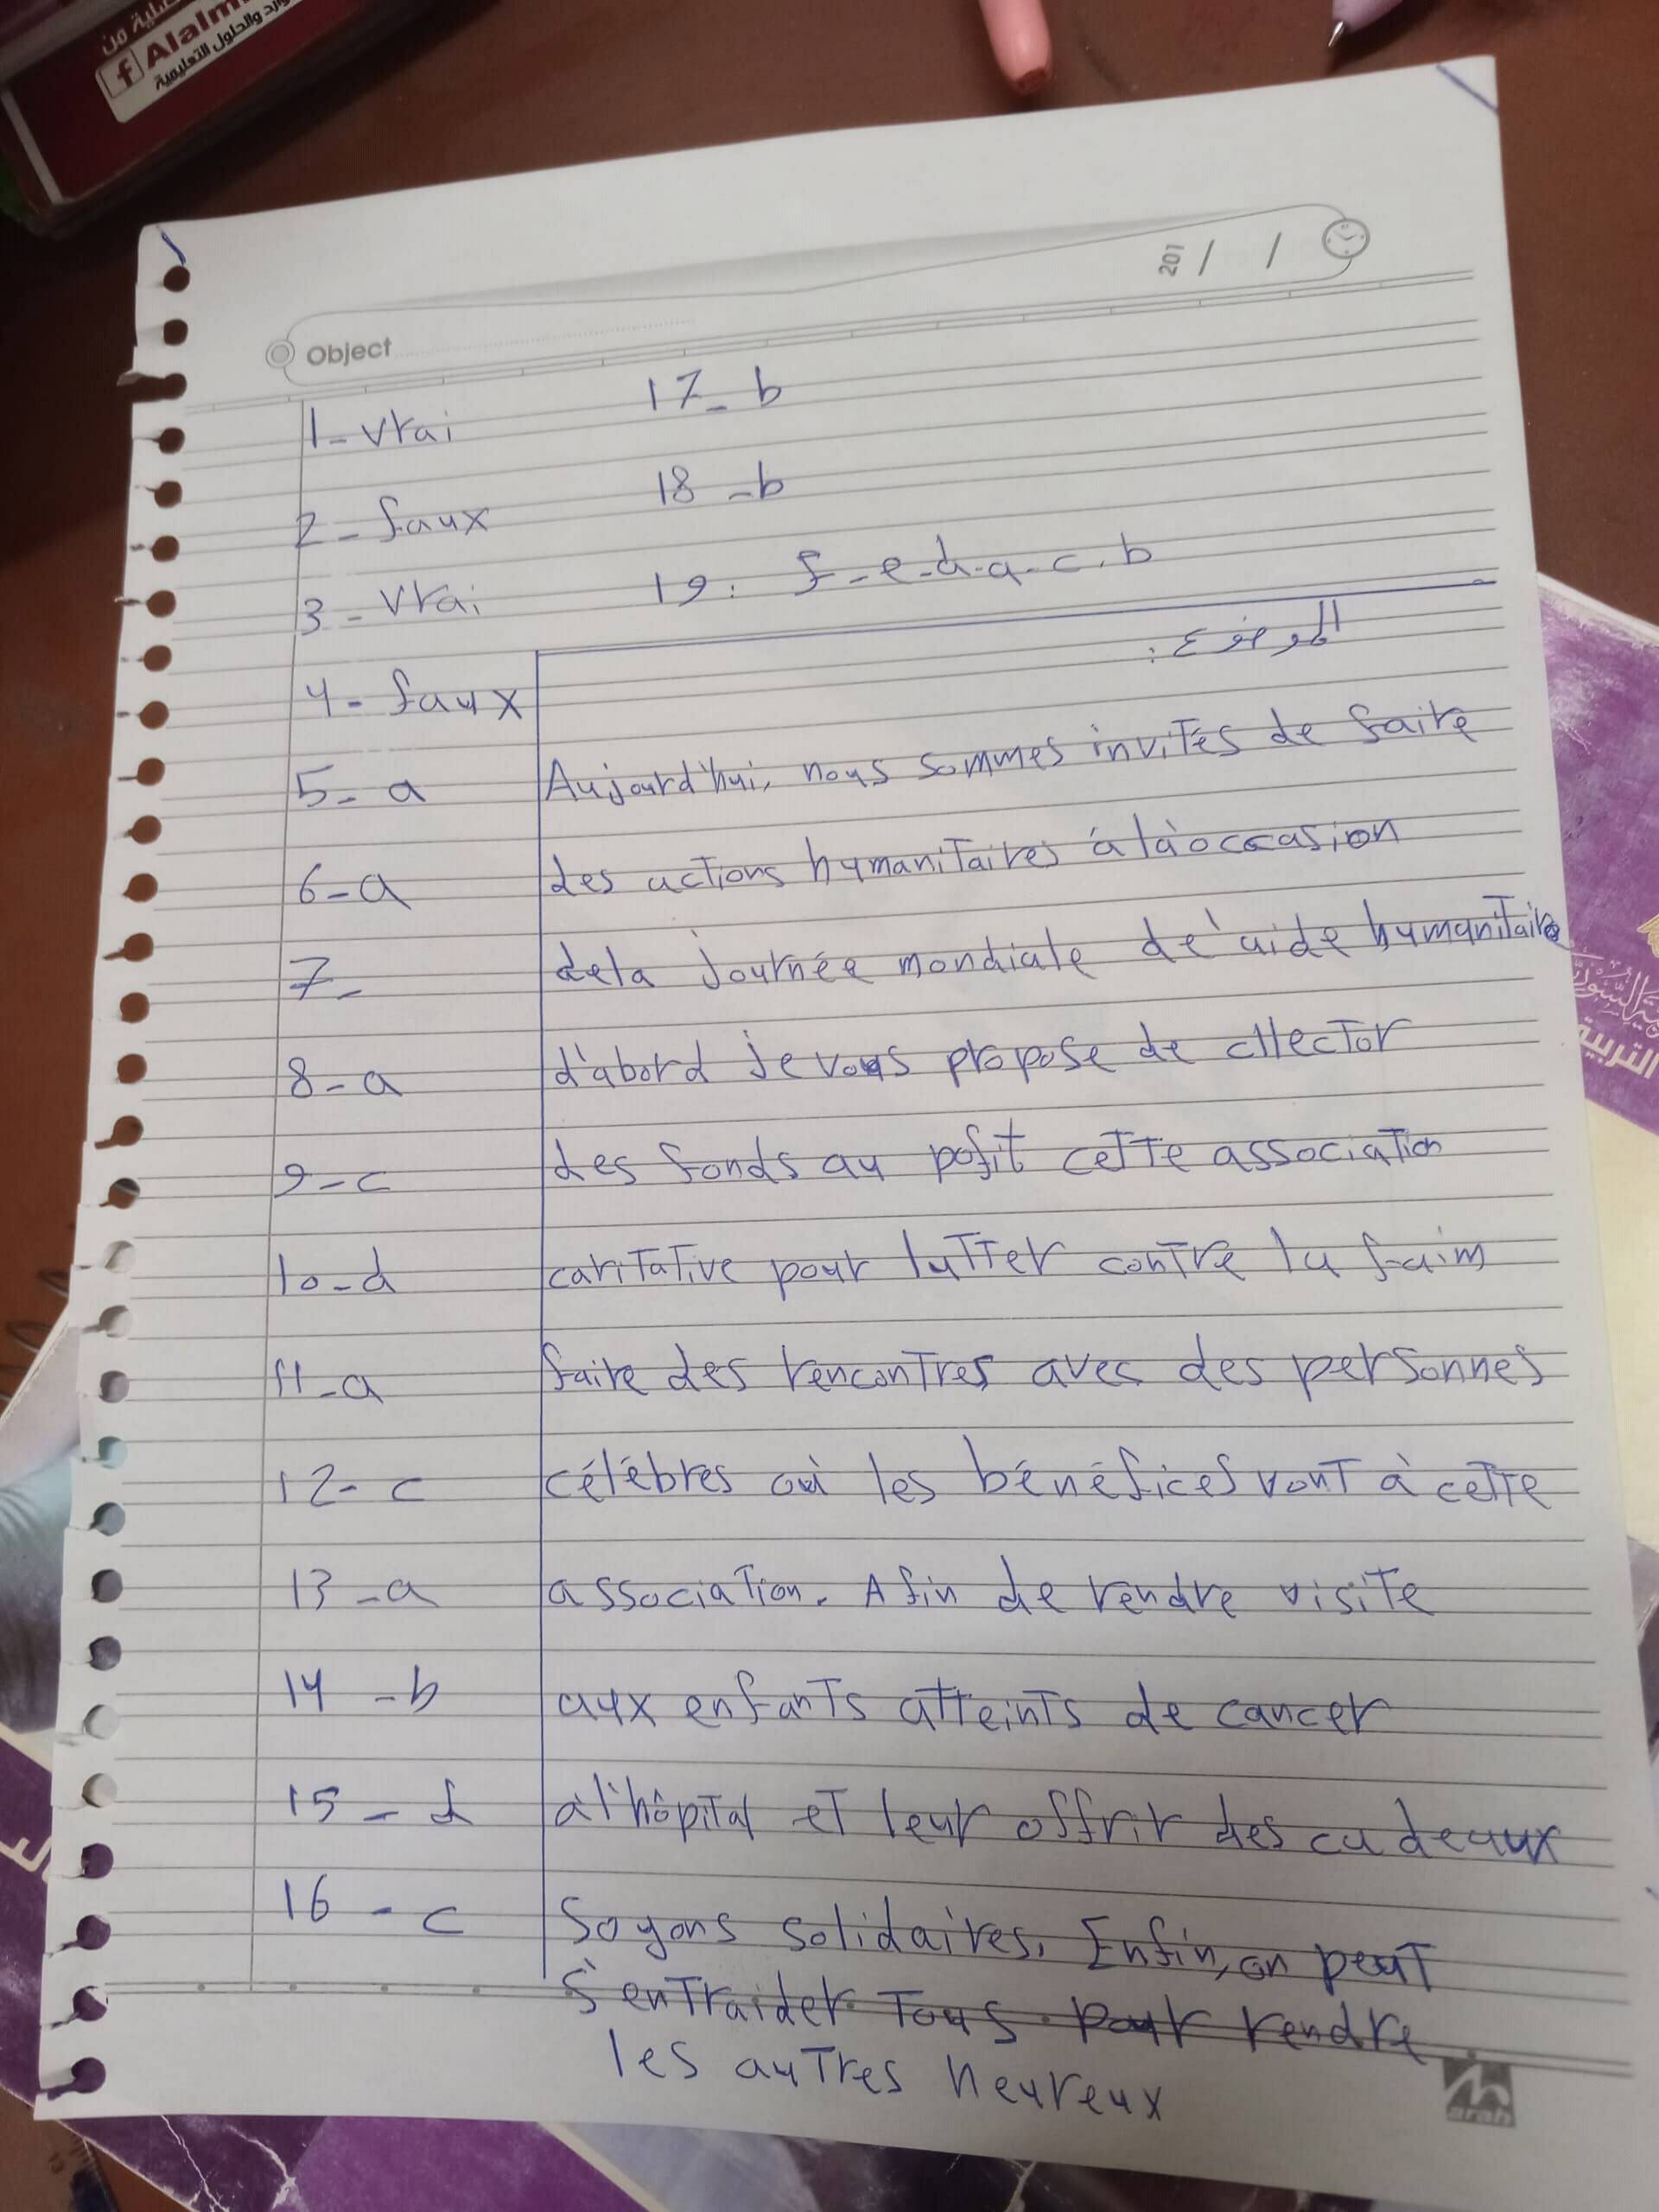 صلية من
f Alalm
وارد والحلول التعليمية
201 / /
Object
1- vrai
2- faux
3- vrai
4- faux
5- a
6- a
7-
8- a
9- c
10- d
11- a
12- c
13- a
14- b
15- d
16- c
17- b
18- b
19: f-e-d-a-c.b
الموضوع:
Aujourd'hui, nous sommes invités de faire
des actions humanitaires á làoccasion
dela journée mondiale de'aide humanitaire
d'abord je vous propose de cllector
des fonds au pofit cette association
caritative pour lutter contre la faim
faire des rencontres avec des personnes
célébres où les bénéfices vont à cette
association. Afin de rendre visite
aux enfants atteints de cancer
àl'hôpital et leur offrir des cadeaux
Soyons solidaires. Enfin, on peut
s'entraider tous. pour rendre
les autres heureux
arab
التربية